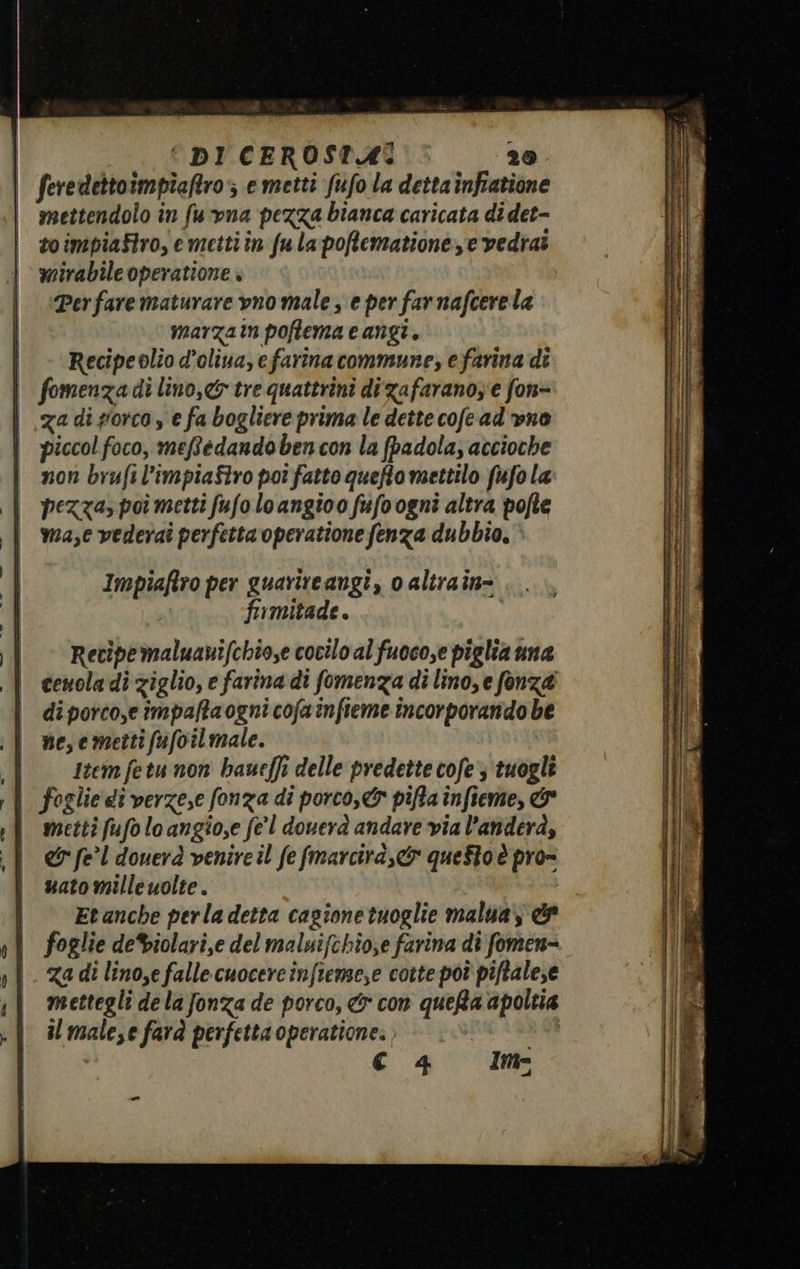 DI CEROSIAI 20
ſere detto impiaſtro; e metti ſuſo la detta infiatione
mettendolo in ſu vna pezza bianca caricata di det-
to impiaſtro, e metti in ſu la poſtematione, e vedrai
mirabile operatione.
Per fare maturare vno male, e per far naſcere la
marza in poſtema e angi.
Recipe olio d'oliua, e farina commune, e farina di
ſomenza di lino, & tre quattrini di zafarano, e ſon-
za di porco, e fa bogliere prima le dette coſe ad vno
piccol foco, meſtẽdando ben con la ſpadola, accioche
non bruſi l'impiaſtro poi fatto queſto mettilo ſuſo la
pezza, poi metti ſuſo lo angio o ſuſo ogni altra poſte
ma, e vederai perfetta operatione ſenza dubbio.
Impiaſtro per guarire angi, o altra in-
firmitade.
Recipe maluauiſchio, e cocilo al fuoco, e piglia una
ceuola di ziglio, e farina di ſomenza di lino, e ſonza
di porco, e impaſta ogni coſa inſieme incorporando be
ne, e metti ſuſo il male.
Item ſe tu non haueſſi delle predette coſe, tuogli
foglie di verze, e ſonza di porco, & piſta inſieme, &
metti ſuſo lo angio, e ſe'l douerà andare via l'anderà,
& ſe'l douerà venire il ſe ſmarcirà, & queſto è pro-
uato mille uolte.
Et anche per la detta cagione tuoglie malua, &
foglie de violari, e del maluiſchio, e farina di ſomen-
za di lino, e falle cuocere inſieme, e cotte poi piſtale, e
mettegli de la ſonza de porco, & con queſta apoltia
il male, e farà perfetta operatione.
C 4 Im-